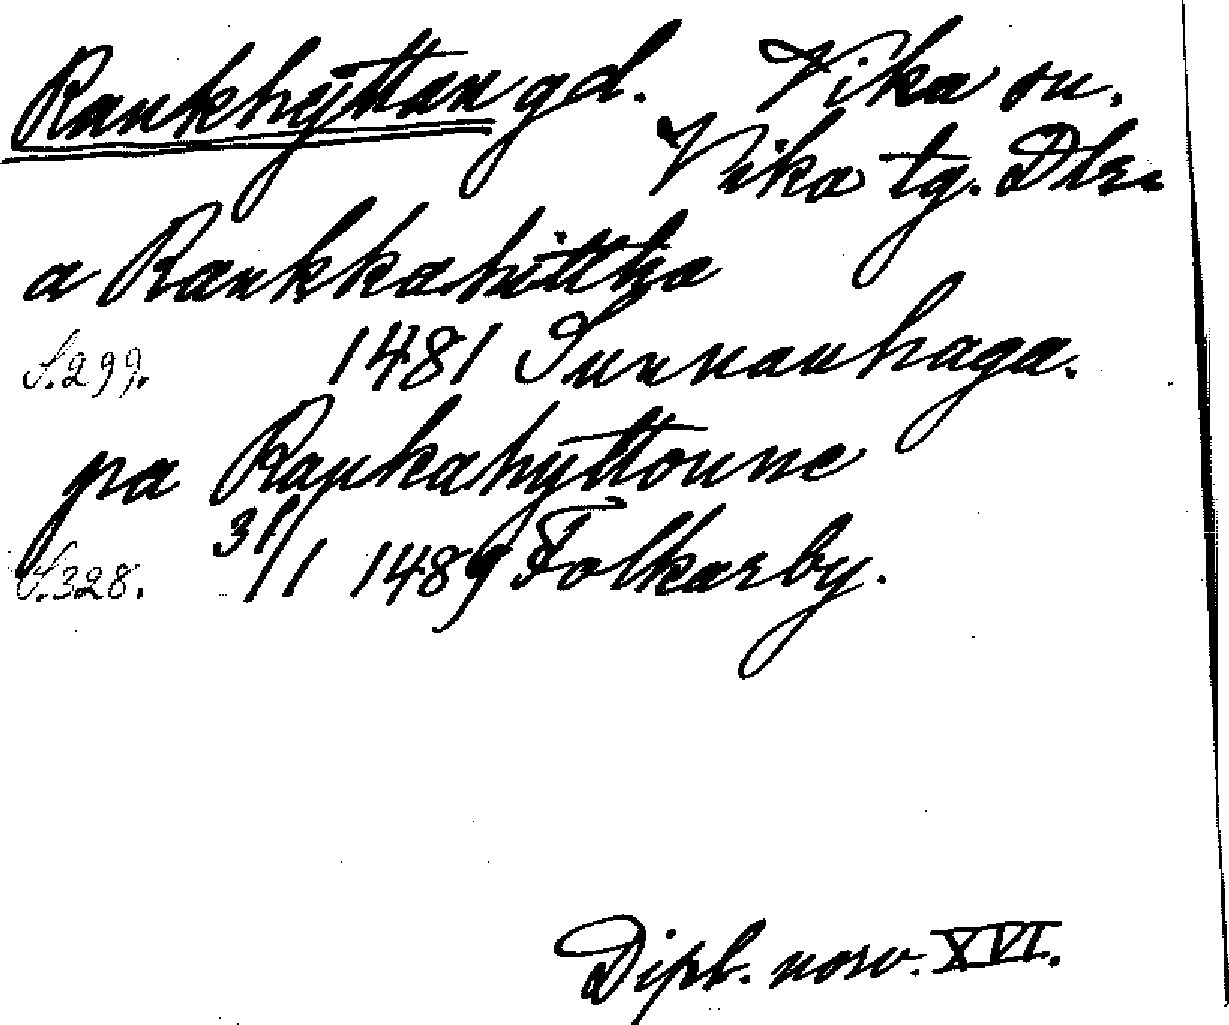 Rankhyttan gd. Vika sn.
Vika tg. Dlr.
a Rankkahittha
S. 299. 1481 Sunnanhaga.
pa Rankahyttonne
S. 328. 31/1 1489 Folkarby.
Dipl. norv. XVI.